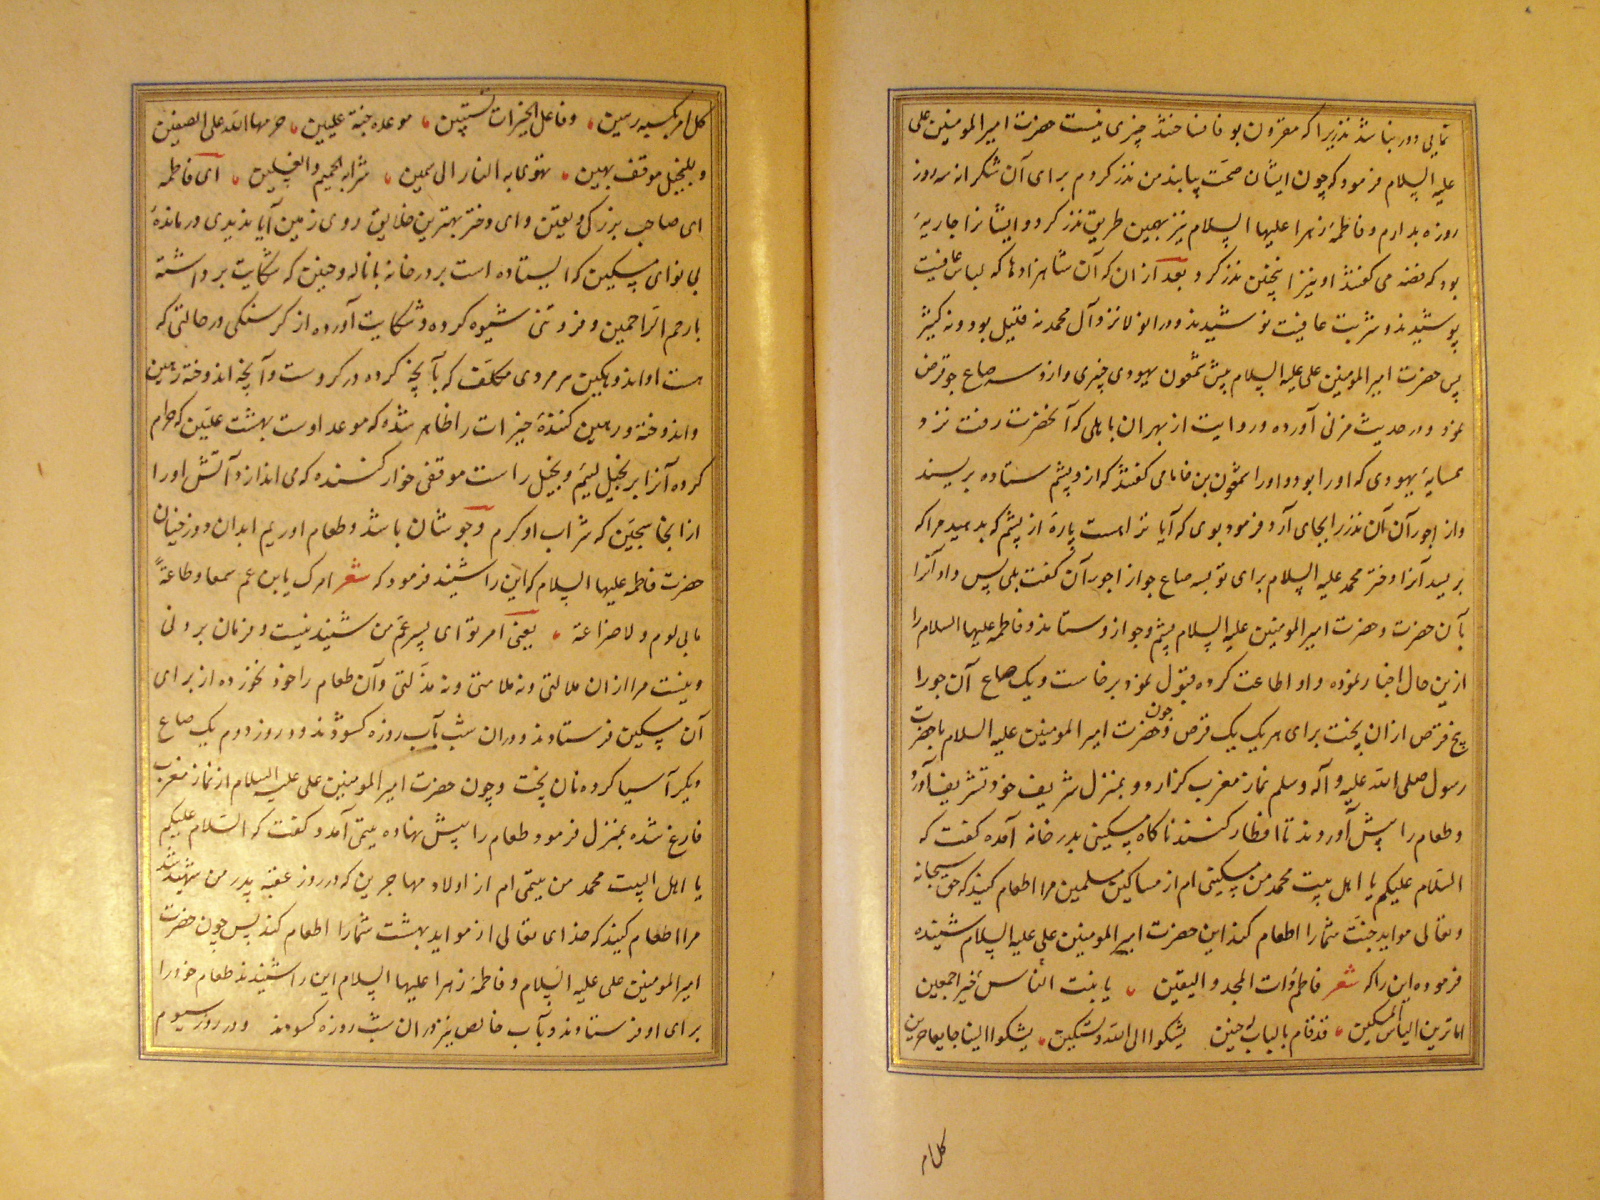 نمایی دور نباشد زیرا که مقرون بوفا نباشد چیزی نیست حضرت امیرالمومنین علی
علیه السلام فرمود که چون ایشان صحت یابند من نذر کردم برای آن شکرانه سه روز
روزه بدارم و فاطمهٔ زهرا علیها السلام نیز بهمین طریق نذر کرد و ایشانرا جاریهٔ
بود که فضه می کفتند او نیز اینچنین نذر کرد و بعد از ان که آن شاهزادها که لباس عافیت
پوشیدند و شربت عافیت نوشیدند و در انولا نزد آل محمد نه قلیل بود و نه کثیر
پس حضرت امیرالمومنین علی علیه السلام پیش شمعون یهودی خیبری و ازو سه صاع جو قرض
نمود و در حدیث مزنی آورده و روایت از مهران باهلی که آنحضرت رفت نزد
همسایهٔ یهودی که اورا بود و اورا شمعون بن فانا می کفتند که از و پشم ستاده بریسند
و از اجور آن نذر را بجای آرد فرمود بوی که آیا ترا هست پارهٔ از پشم که بدهید مرا که
بریسد آنرا دختر محمد علیه السلام برای تو بسه صاع جو از اجور آن کفت بلی پس داد آنرا
بآن حضرت و حضرت امیرالمومنین علیه السلام پشم و جو ازو ستاند و فاطمه علیها السلام را
ازین حال اخبار نموده و او اطاعت کرده قبول نمود برخاست و یک صاع آن جو را
پنج قرص ازان پخت برای هر یک یک قرص و چون حضرت امیرالمومنین علیه السلام با حضرت
رسول صلی الله علیه و آله وسلم نماز مغرب کزارد و بمنزل شریف خود تشریف آورد
و طعام را پیش آوردند تا افطار کنند ناکاه مسکینی بدر خانه آمده کفت که
السلام علیکم یا اهل بیت محمد من مسکینی ام از مساکین مسلمین مرا اطعام کنید که حق سبحانه
و تعالی مواید جنت شما را اطعام کند این حضرت امیرالمومنین علی علیه السلام شنیده
فرموده این را که شعر فاطم ذات المجد والیقین یا بنت الناس خیر اجمعین
اما ترین البائس المسکین قد قام بالباب له حنین یشکوا الی الله ویستکین یشکوا الینا جایعا حزین
کل ام
کل امر بکسبه رهین وفاعل الخیرات یستبین موعده جنة علیین حرمها الله علی الضنین
وللبخیل موقف مهین تهوی به النار الی سجین شرابه الحمیم والغسلین ای فاطمه
ای صاحب بزرکی و یقین و ای دختر بهترین خلایق روی زمین آیا ندیدی درماندهٔ
بی نوای مسکین که ایستاده است بر در خانه با ناله و حنین که شکایت برداشته
بارحم الراحمین و فروتنی شیوه کرده و شکایت آورده از کرسنکی در حالتی که
هست او اندوهکین هر مردی مکلف که بآنچه کرده در کروست و آنچه اندوخته رهین
و اندوخته و رهین کنندهٔ خیرات را ظاهر شده که موعد اوست بهشت علیین که حرام
کرده آنرا بر بخیل لئیم و بخیل راست موقفی خوار کننده که می اندازد آتش اورا
ازانجا بسجین که شراب او کرم و جوشان باشد و طعام او ریم ابدان دوزخیان
حضرت فاطمه علیها السلام که این را شنیند فرمود که شعر امرک یابن عم سمعا وطاعة
مابی لوم ولا ضراعة یعنی امر تو ای پسر عم من شنیدنیست و فرمان بردنی
و نیست مرا ازان ملالتی و نه ملامتی و نه مذلتی و آن طعام را خود نخورده از برای
آن مسکین فرستادند و دران شب بآب روزه کشودند و در روز دوم یک صاع
دیکر آسیا کرده نان پخت و چون حضرت امیرالمومنین علی علیه السلام از نماز مغرب
فارغ شده بمنزل فرمود طعام را پیش نهاده یتیمی آمد و کفت که السلام علیکم
یا اهل البیت محمد من یتیمی ام از اولاد مهاجرین که در روز عقبه پدر من شهید شد
مرا اطعام کنید که خدای تعالی از مواید بهشت شما را اطعام کند پس چون حضرت
امیرالمومنین علی علیه السلام و فاطمهٔ زهرا علیها السلام این را شنیدند طعام خود را
برای او فرستادند و بآب خالص نیز دران شب روزه کشودند و در روز سیوم